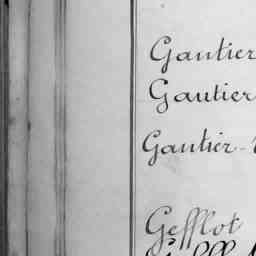 Gautier
Gautier
Gautier-
Gefflot